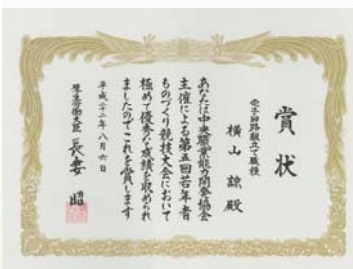 賞状
電子回路組立て職種
横山 諒 殿
あなたは中央職業能力開発協会
主催による第五回若年者
ものづくり競技大会において
極めて優秀な成績を収められ
ましたのでこれを賞します
平成二十二年八月六日
厚生労働大臣 長妻 昭